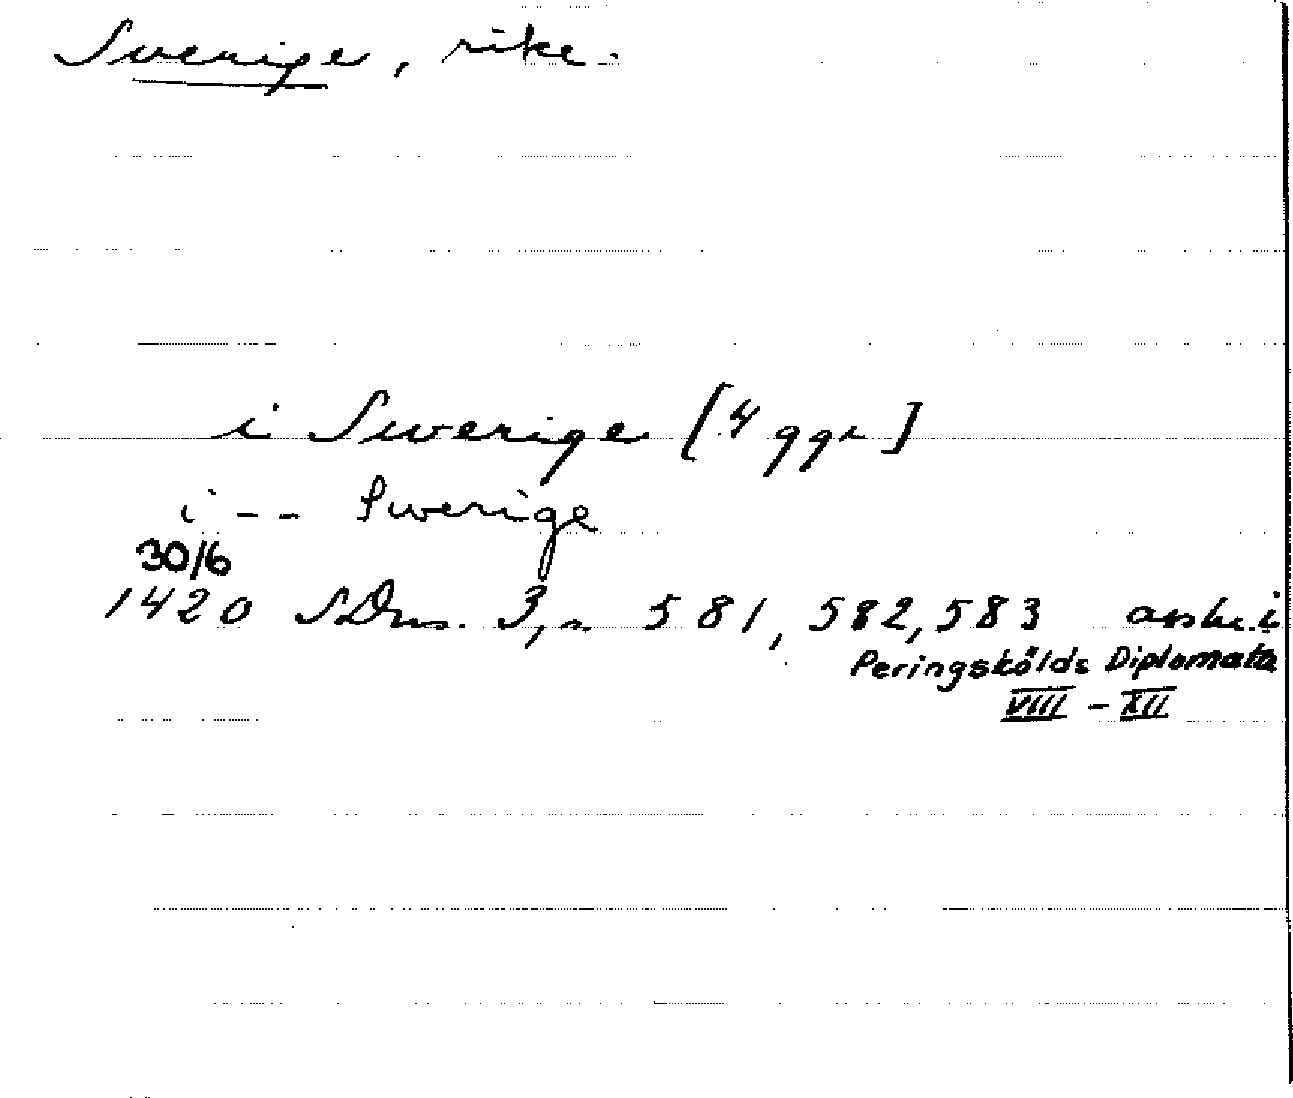 Sverige, rike.
i Swerige [4 ggr]
i -- Swerige
30/6
1420 SDns. 3, s. 581, 582, 583 avskr. i
Peringskölds Diplomata
VIII - XII